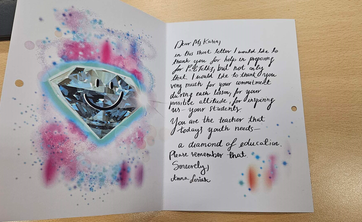 Dear Ms Kasia,
in this short letter I would like to
thank you for help in preparing
for but not only
that. I would like to thank you
very much for your commitment
during each lesson, for your
possitive attitude, for inspiring
us - your students.
You are the teacher that
today's youth needs -
a diamond of education.
Please remember that.
Sincerely,
Anna